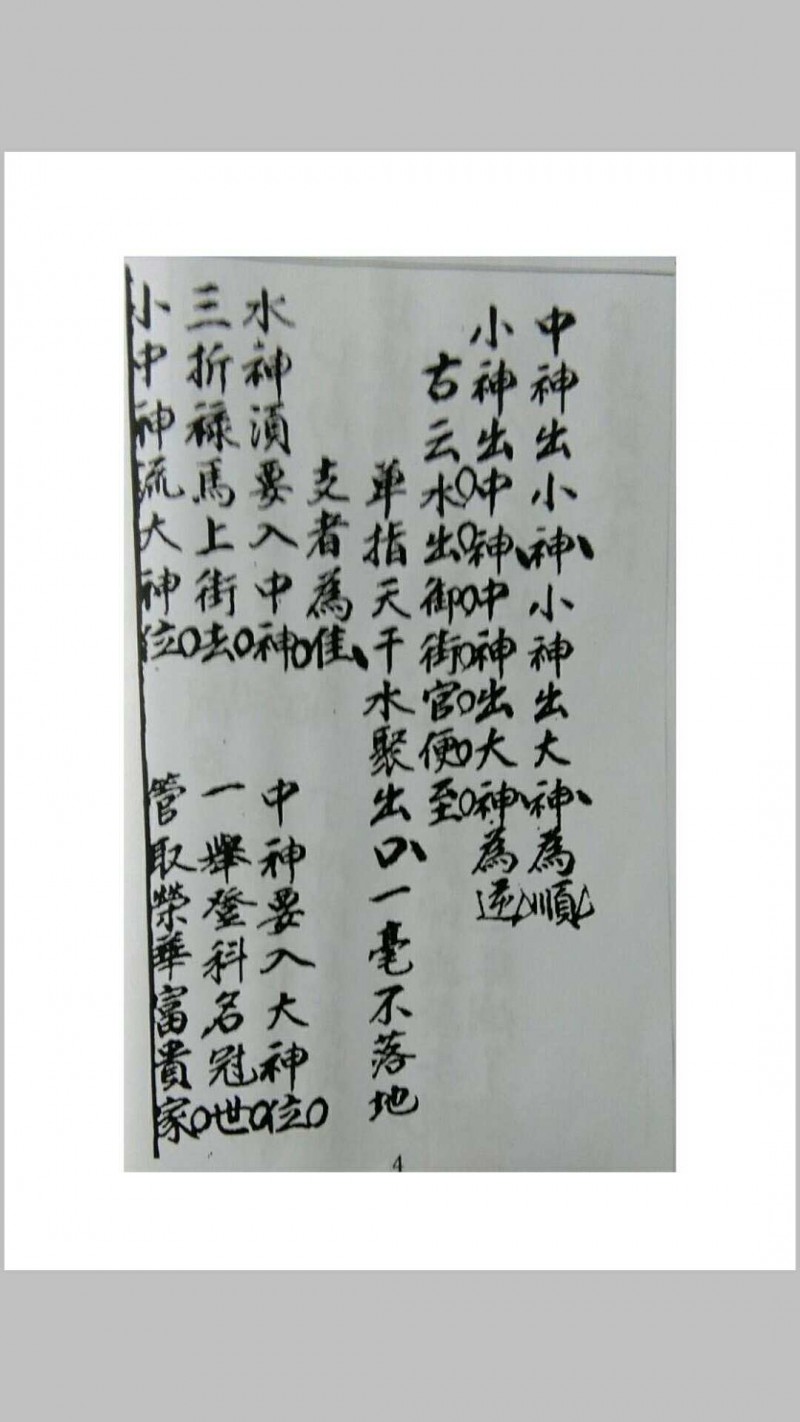 中神出小神、小神出大神、為順、
小神出中神中神出大神、為逆、
古云水出御街官便至
單指天干水聚出口、一毫不落地
支者為佳、
水神須要入中神。中神要入大神位。
三折祿馬上街去。一舉登科名冠世。
小中神流大神位。管取榮華富貴家。
4